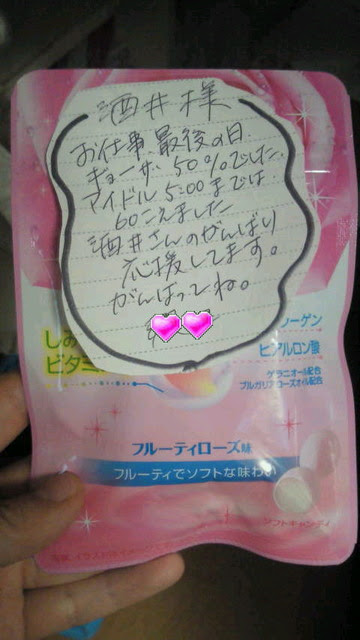 酒井様
お仕事最後の日
ギョーザ 50%でした。
アイドル 5:00までは
60こえました
酒井さんのがんばり
応援してます。
がんばってね。
しみ
ビタミ
ラーゲン
ヒアルロン酸
ゲラニオール配合
ブルガリアローズオイル配合
フルーティローズ味
フルーティでソフトな味わい
ソフトキャンディ